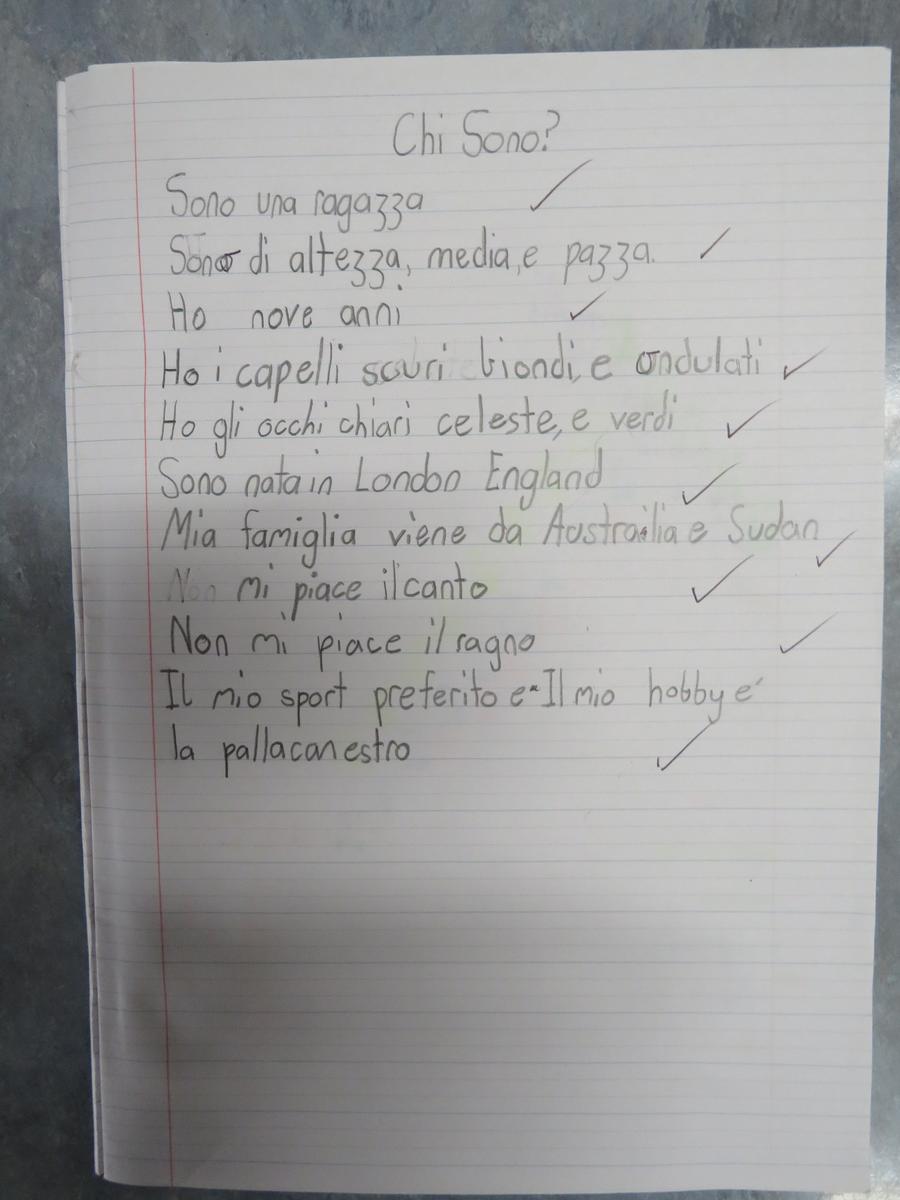 Chi Sono?
Sono una ragazza
Sono di altezza, media, e pazza.
Ho nove anni
Ho i capelli scuri biondi, e ondulati
Ho gli occhi chiari celeste, e verdi
Sono nata in London England
Mia famiglia viene da Austrailia e Sudan
Non mi piace il canto
Non mi piace il ragno
Il mio sport preferito e Il mio hobby e'
la pallacanestro